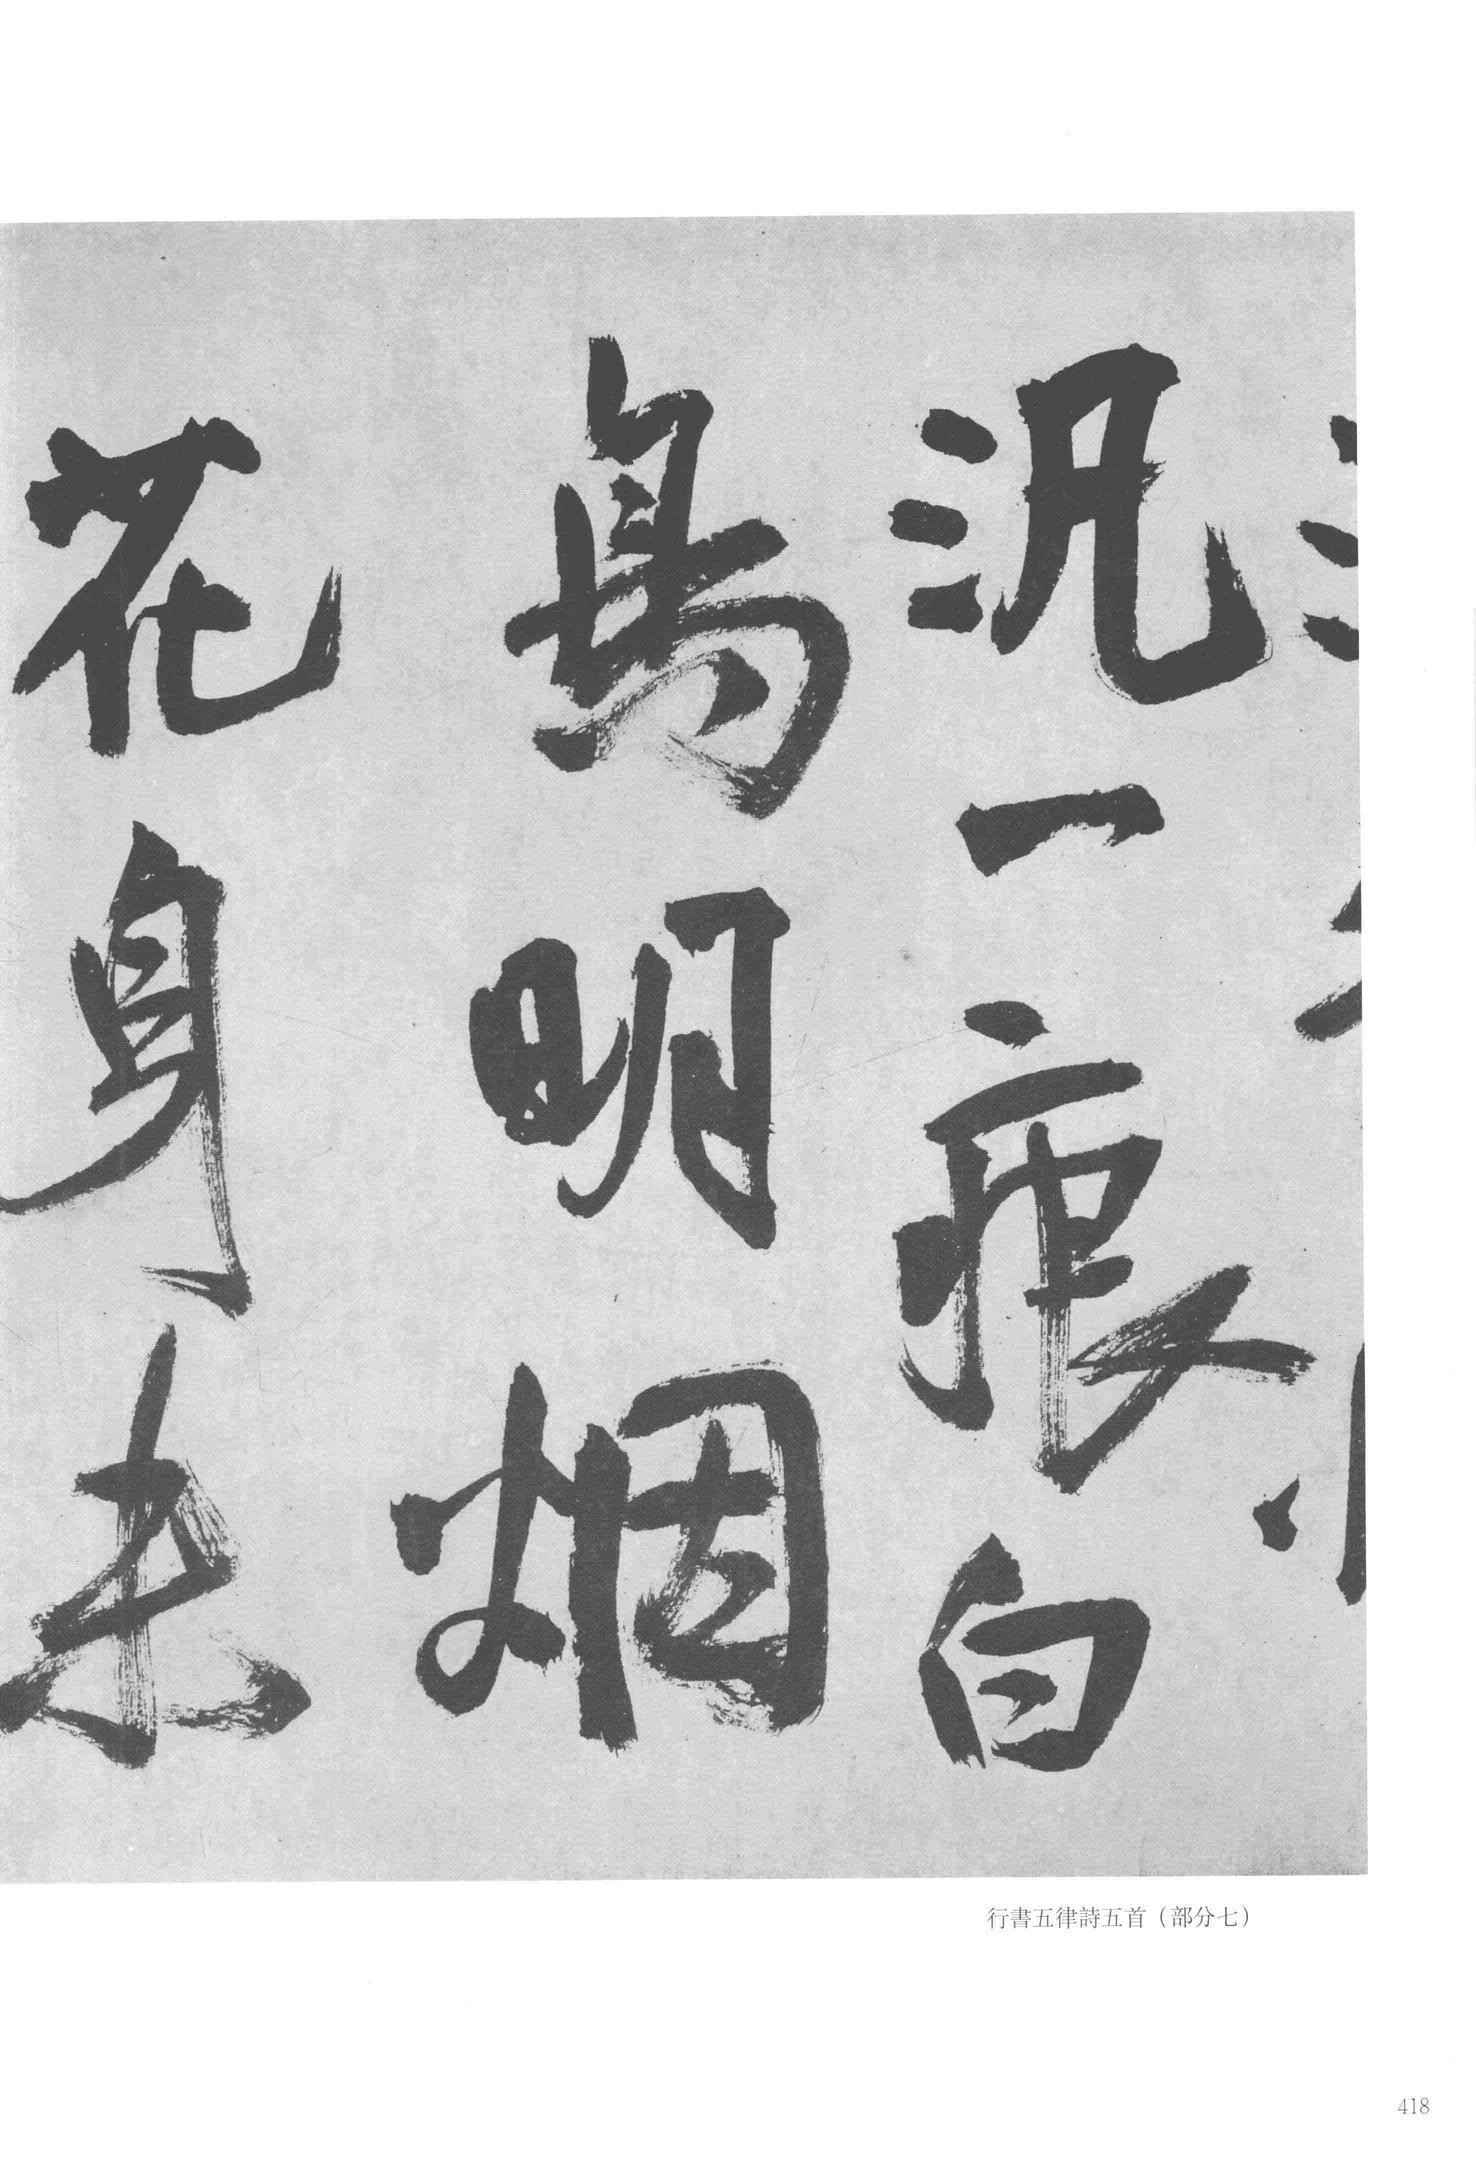 汎一痕白
鳥明烟
花身未
行書五律詩五首（部分七）
418